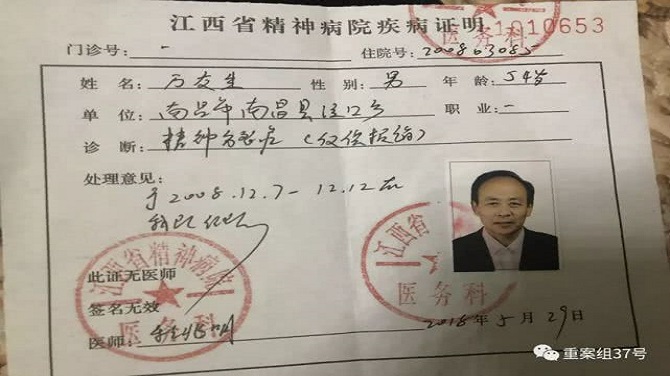 江西省精神病院疾病证明
1010653
医务科
门诊号: -
住院号: 200803085
姓 名: 万友生 性 别: 男 年 龄: 54岁
单 位: 南昌市南昌县泾口乡 职 业: -
诊 断: 精神分裂症（仅供报销）
处理意见:
于2008.12.7-12.12在
我院
江西省精神病院
医务科
江西省
医务科
此证无医师
签名无效
医师:
2018年5月29日
重案组37号